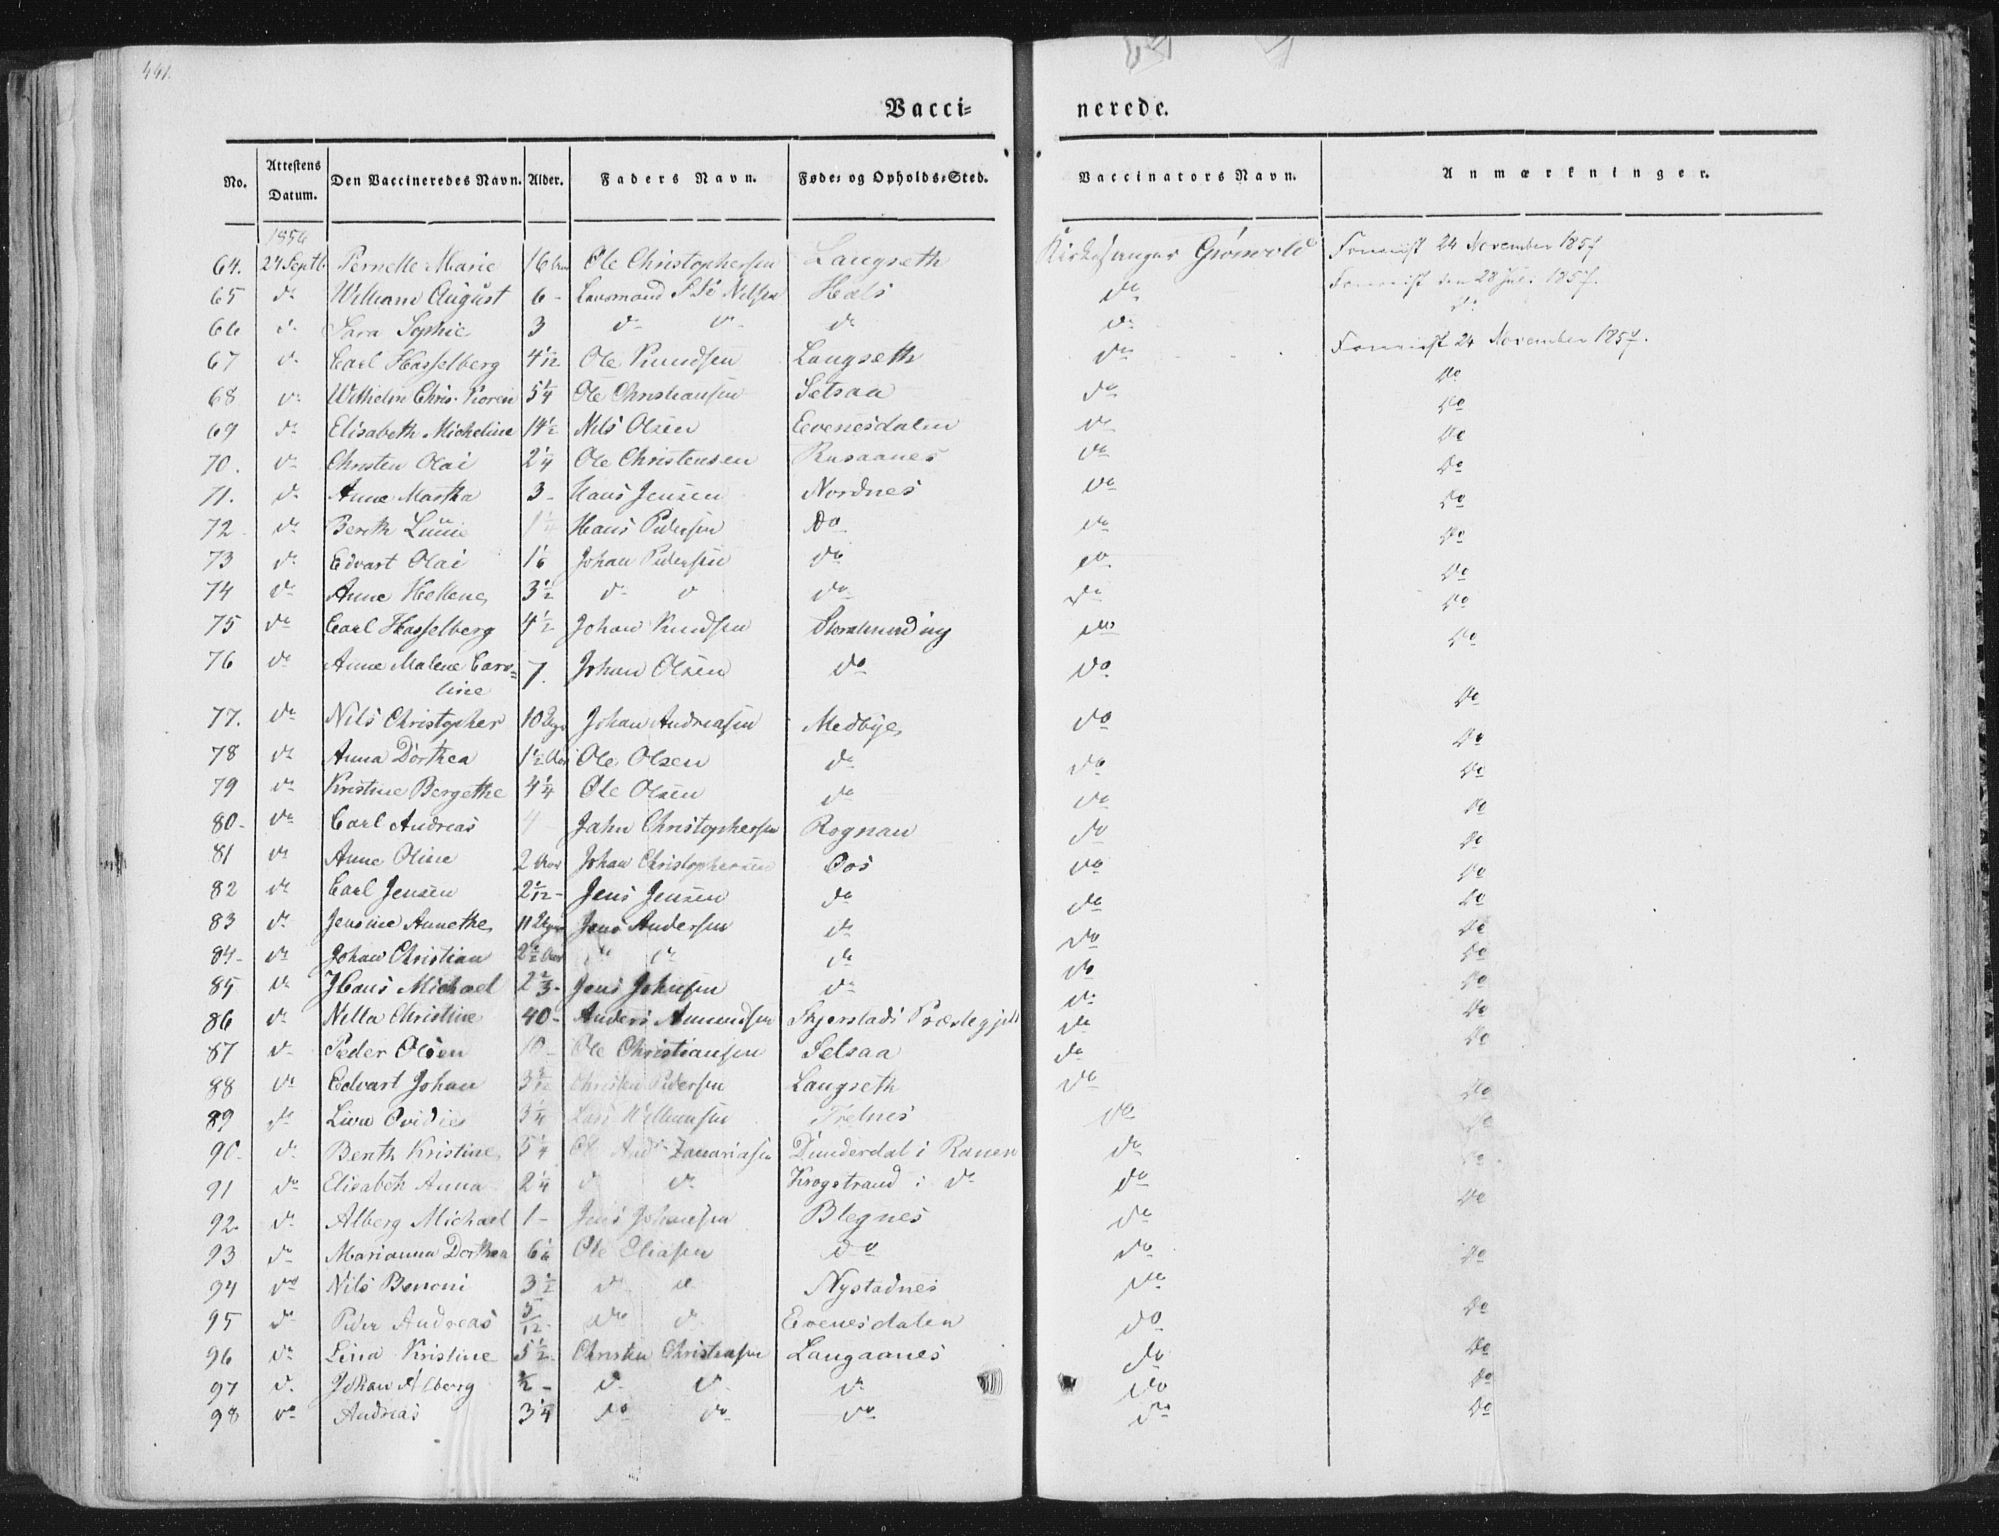 441.
Vacci= nerede.
No. Attestens Datum. Den Vaccineredes Navn. Alder. Faders Navn. Føde= og Opholds=Sted. Vaccinators Navn. Anmærkninger.
1856
64. 24 Septb Pernelle Marie 16 Aar Ole Christophersen Langseth Kirkesanger Grönvold 24 November 1857
65 do William August 6 - Nilsen Hals do 28 Juli 1857.
66 do Sara Sophie 3 do do do do do
67 do Carl Hasselberg 4 1/12 Ole Knudsen Langseth do 24 November 1857.
68 do Wilhelm Chris. Koren 5 1/4 Ole Christiansen Setsaa do do
69 do Elisabeth Micheline 14 1/2 Nils Olsen Evenesdalen do do
70. do Christen Olai 2 1/4 Ole Christensen Rusaanes do do
71. do Anne Martha 3 - Hans Jensen Nordnes do do
72. do Bereth Luuie Hans Pedersen do do do
73 do Edvart Olai 1 1/6 Johan Pedersen do do do
74 do Anne Hellene 3 1/2 do do do do do
75 do Carl Hasselberg 4 1/2 Johan Knudsen do do
76 do Anne Malene Caro=
line 7. Johan Olsen do do do
77. do Nils Christopher 10 Johan Andreasen Medbye do do
78 do Anna Dorthea 1 1/2 Aar Ole Olsen do do do
79 do Kristine Bergethe 4 1/4 Ole Olsen do do do
80. do Carl Andreas 4 - Jahn Christophersen Rognan do do
81 do Anne Oline 2 Aar Johan Christophersen do do
82 do Carl Jensen 2 1/12 - Jens Jensen do do do
83 do Jensine Annethe 11 Jens Andersen do do do
84 - do Johan Christian 2 1/2 Aar do do do do do
85 do Hans Michael 2 2/3 - Jens Johnsen do do do
86 do Nella Christine 40 - Anders Amundsen Skjerstads Præstegjeld do do
87 do Peder Olsen 10 - Ole Christiansen Setsaa do do
88 do Edvart Johan 3 Christen Pedersen Langseth do do
89 do Liva Ovidie 3 1/4 Lars Willumsen do do
90. do Benth Kristine 5 1/4 Ole And. Zakariasen Dunderdal i Ranen do do
91 do Elisabeth Anna 2 1/4 do do Krogstrand i do do do
92. do Alberg Michael 1 - Jens Johansen Blegnes do
93 do Marianna Dorthea 6 1/2 Ole Eliasen do do do
94 do Nils Benoni 3 1/2 do do Nystadnes do
95 do Peder Andreas 3/12 - do do Evenesdalen do do
96 do Lina Kristine 5 1/2 Christen Christensen Langaanes do do
97 do Johan Alberg 1/2 - do do do do do
98 do Andreas 3 1/4 do do do do do